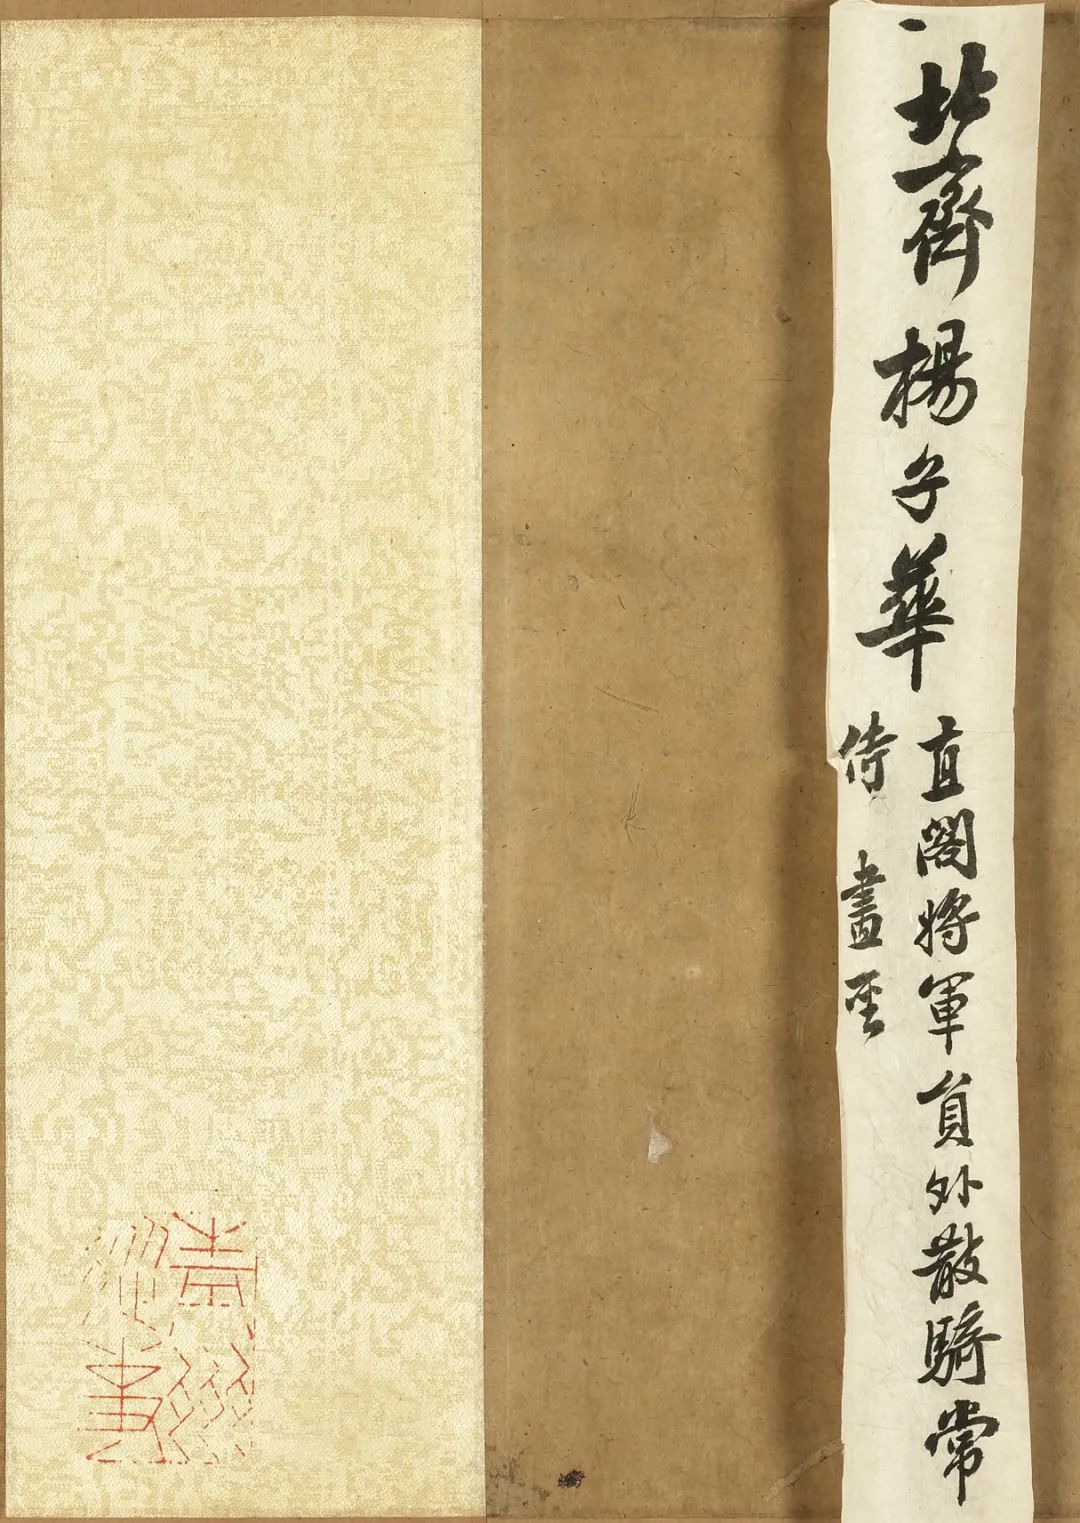 北齊楊子華
直閣將軍員外散騎常
侍 畫聖